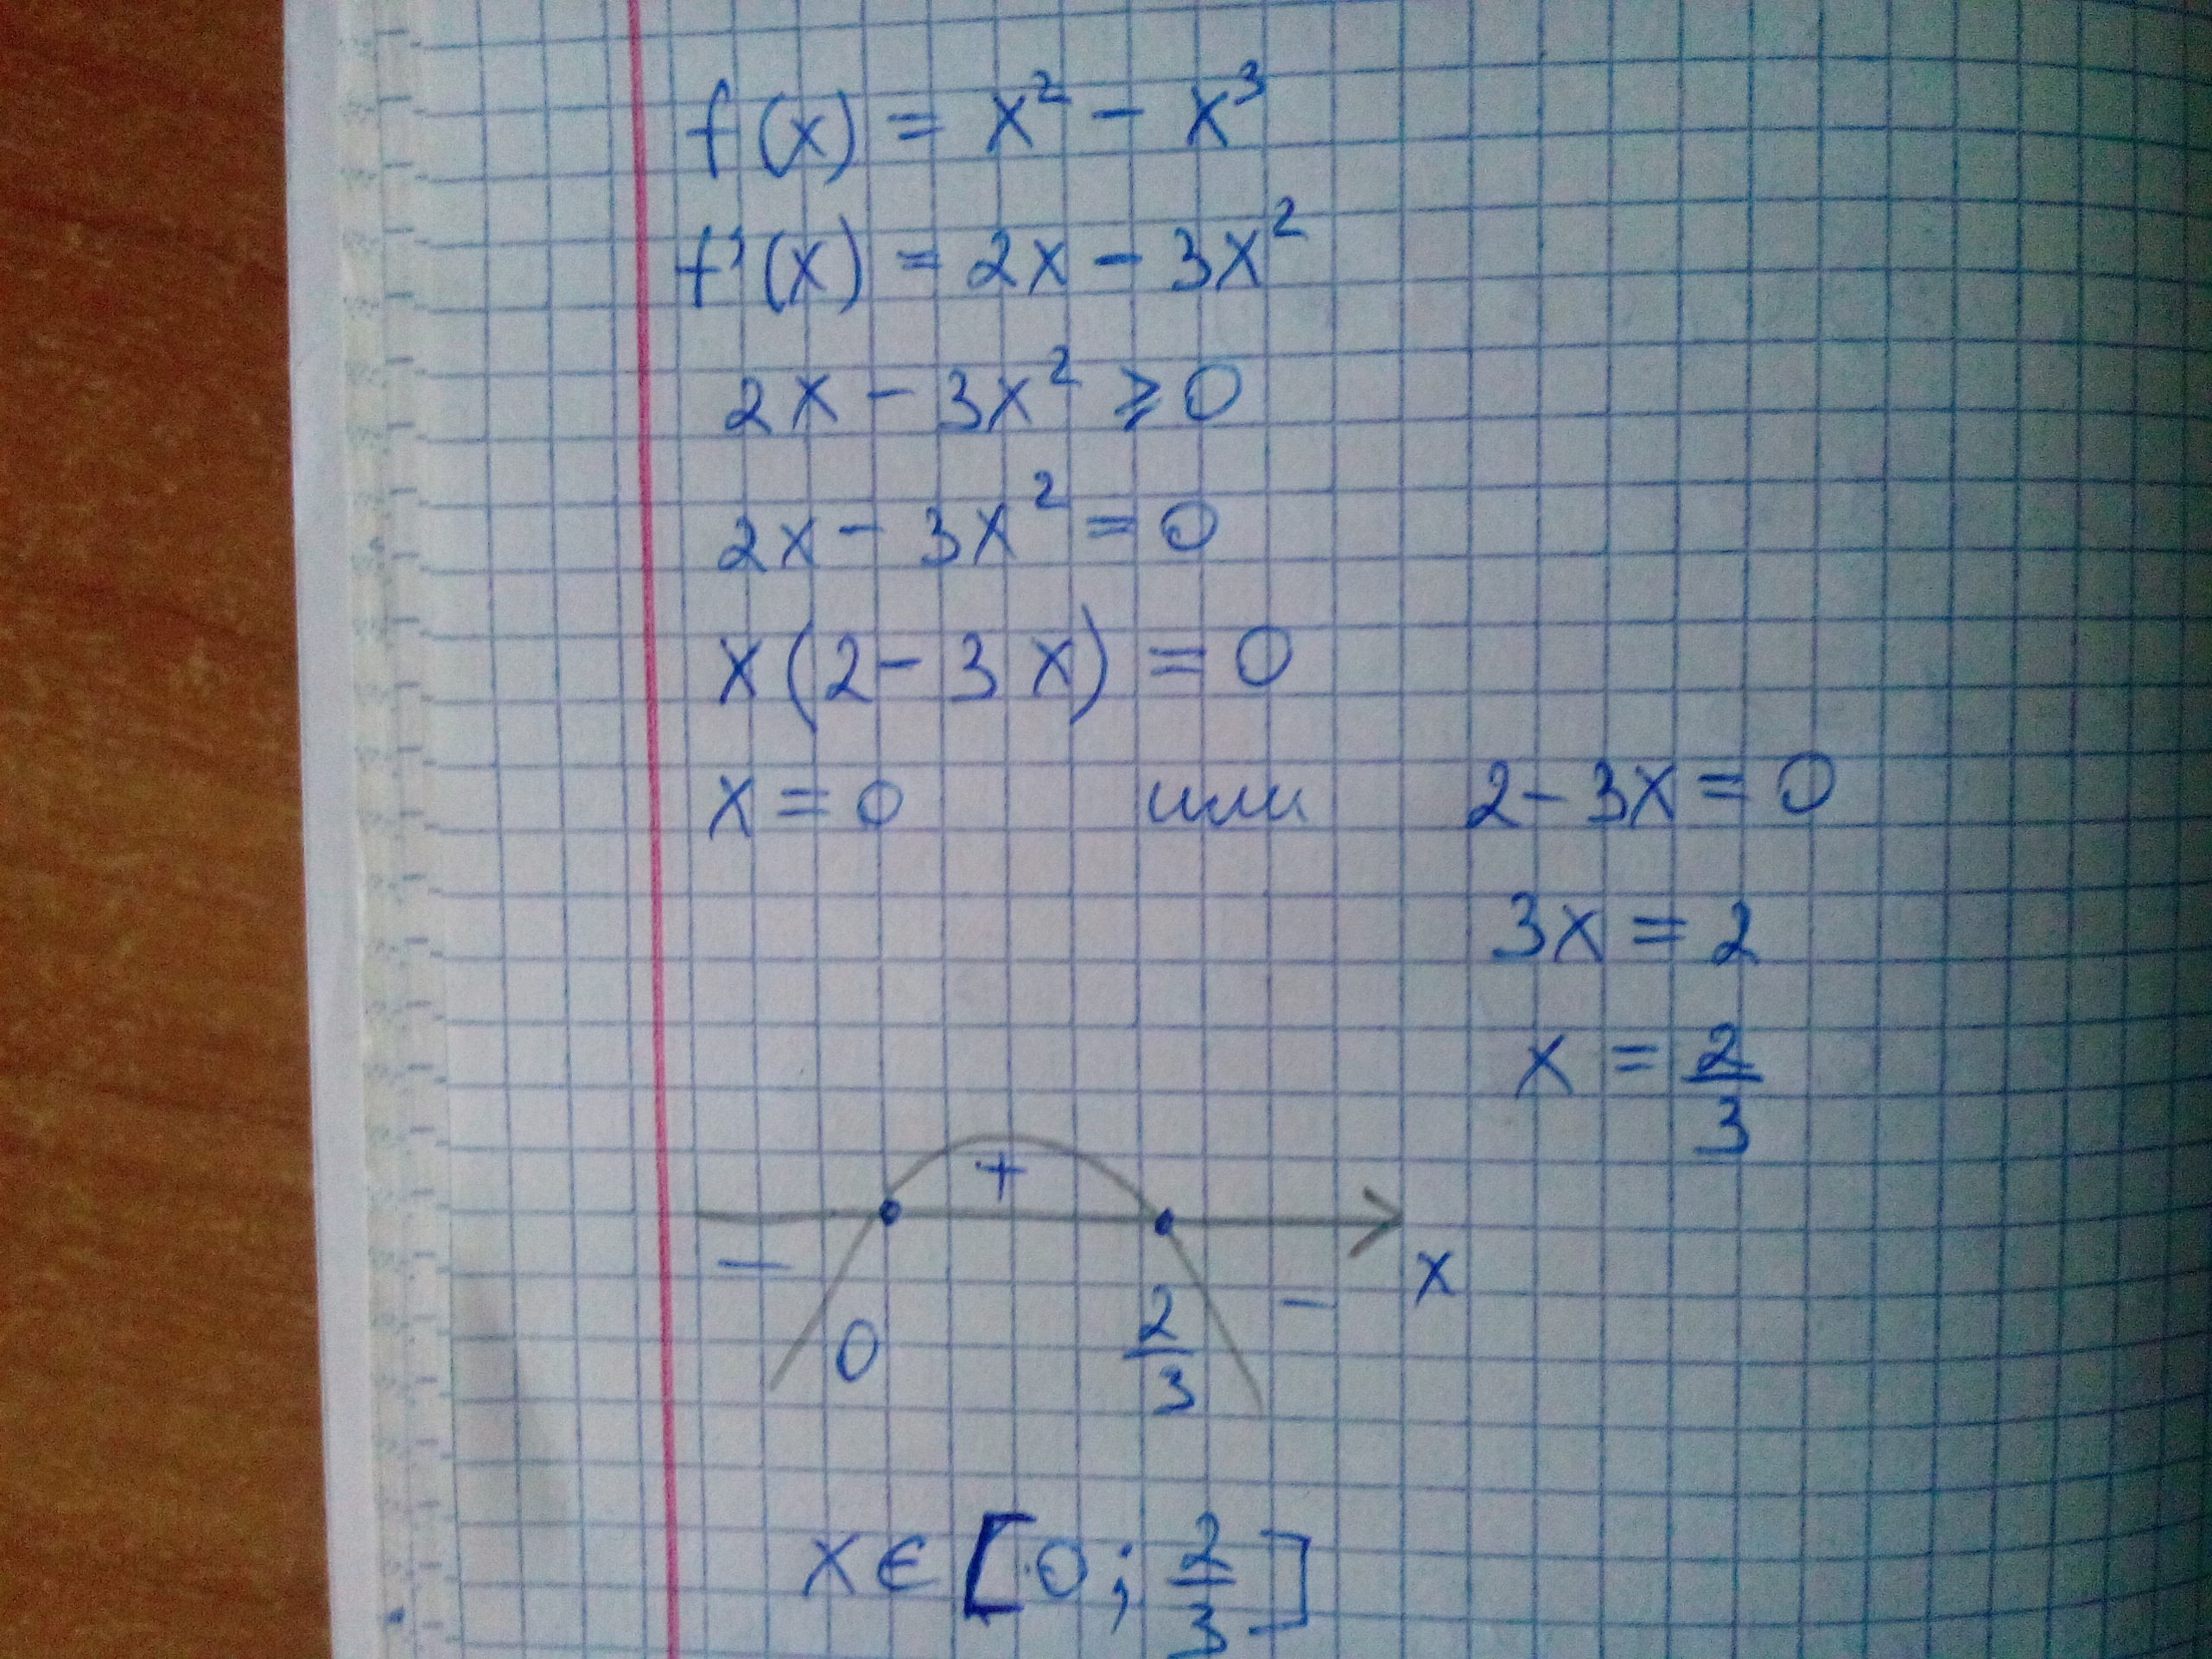 f(x) = x² - x³
f'(x) = 2x - 3x²
2x - 3x² ⩾ 0
2x - 3x² = 0
x(2 - 3x) = 0
x = 0 или 2 - 3x = 0
3x = 2
x = 2/3
+
- - x
0 2/3
x ∈ [0; 2/3]